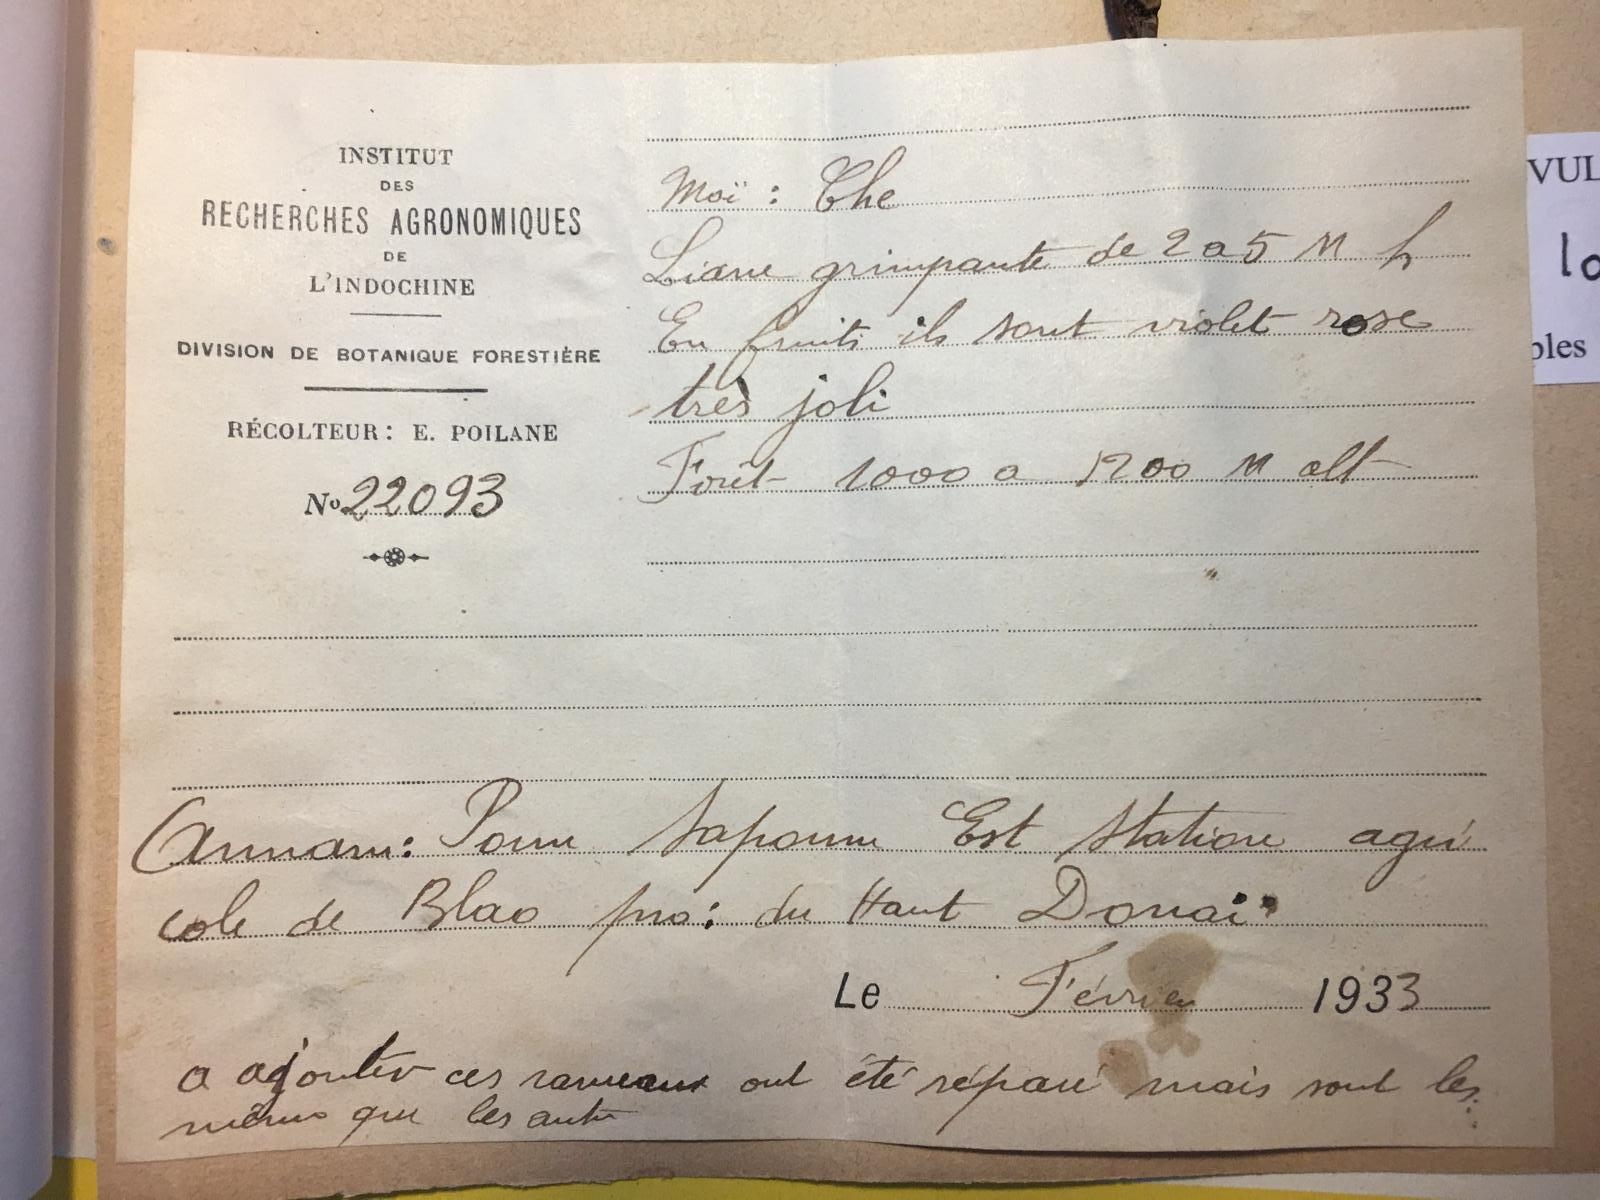 INSTITUT
DES
RECHERCHES AGRONOMIQUES
DE
L'INDOCHINE
DIVISION DE BOTANIQUE FORESTIÈRE
RÉCOLTEUR: E. POILANE
No 22093
Moï : Che
Liane grimpante de 2 a 5 M h
En fruits ils sont violet rose
très joli
Forêt 1000 a 1200 M alt
Annam: Est Station agri
cole de Blao pro: du Haut Donai
Le Février 1933
a ajouter ces rameaux ont été séparé mais sont les
même que les autre
VUL
lo
bles